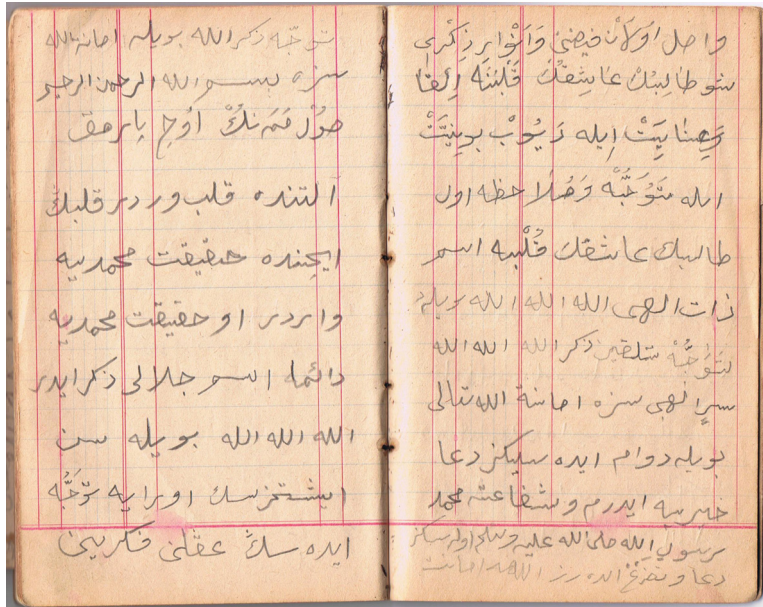 واصل اولان فيضنى وَأنْوارِ ذِكْرى
شو طَالِبِنْكْ عَاشِقْنْكْ قَلْبْنَه اِلقا
اِيله دَيُوبْ بونِيَّتْ
ايله تَوَجُّهْ وَمُلَاحظه اول
طالبنك عاشقنك قَلْبنه اسم
ذات الهى الله الله الله بويله
تَوَجُّهْ تلقين ذكر الله الله الله
الهى سزه امانة الله تعالى
بويله دوام ايده سيكز دعا
خيريه ايدرم وشفاعته محمد
رسول الله صلى الله عليه وسلم
دعا امانت
توجّه ذكر الله بويله امانة الله
سزه بسم الله الرحمن الرحيم
صول مَمَه نكْ اوج پارمق
التنده قلب وردر قلبك
ايچنده حقيقت محمديه
واردر او حقيقت محمديه
دائما اسم جلالى ذكر ايدر
الله الله الله بويله سن
ايشتمزسك اورايه توَجُّه
ايده سكْ عقلنى فكرينى